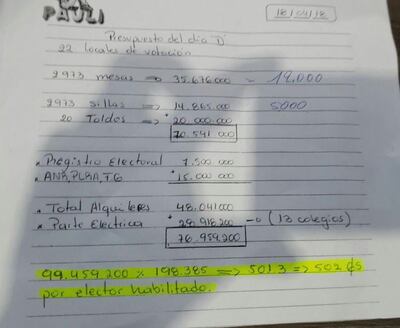 PAULI
18/04/18
Presupuesto del dia "D"
22 locales de votación
2973 mesas => 35.676.000 - 12.000
2973 sillas => 14.865.000 5000
20 Toldos => + 20.000.000
70.541.000
* Registro Electoral 7.500.000
* ANR, PLRA, F.G + 15.000.000
* Total Alquileres 48.041.000
* Parte Electrica + 28.918.200 -o (13 colegios)
76.959.200
99.459.200 % 198.385 => 501.3 => 502 Gs
por elector habilitado.